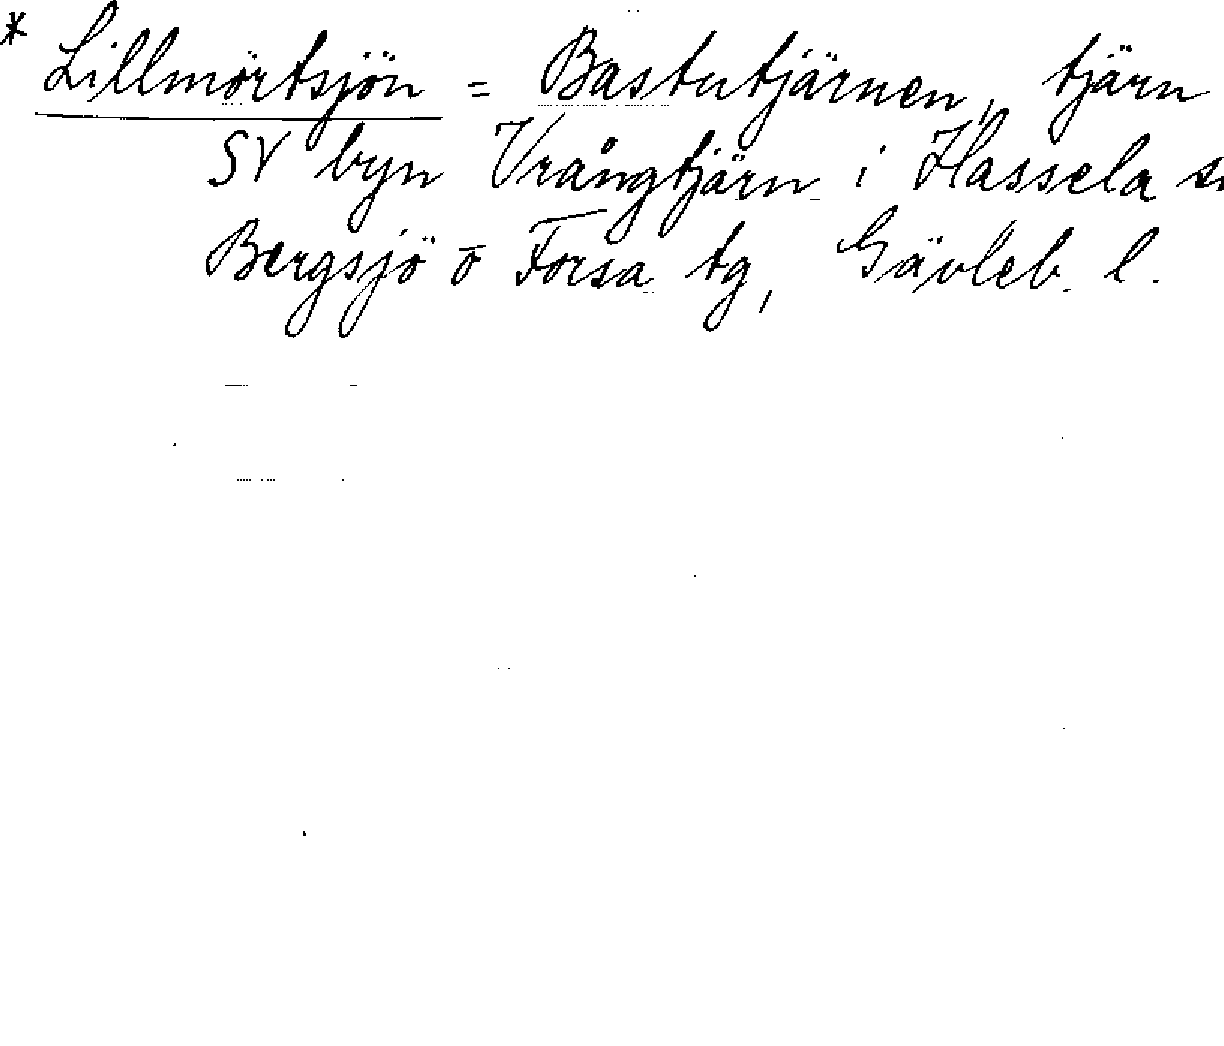 * Lillmörtsjön = Bastutjärnen, tjärn
SV byn Vrångtjärn i Hassela sn
Bergsjö o Forsa tg, Gävleb. l.